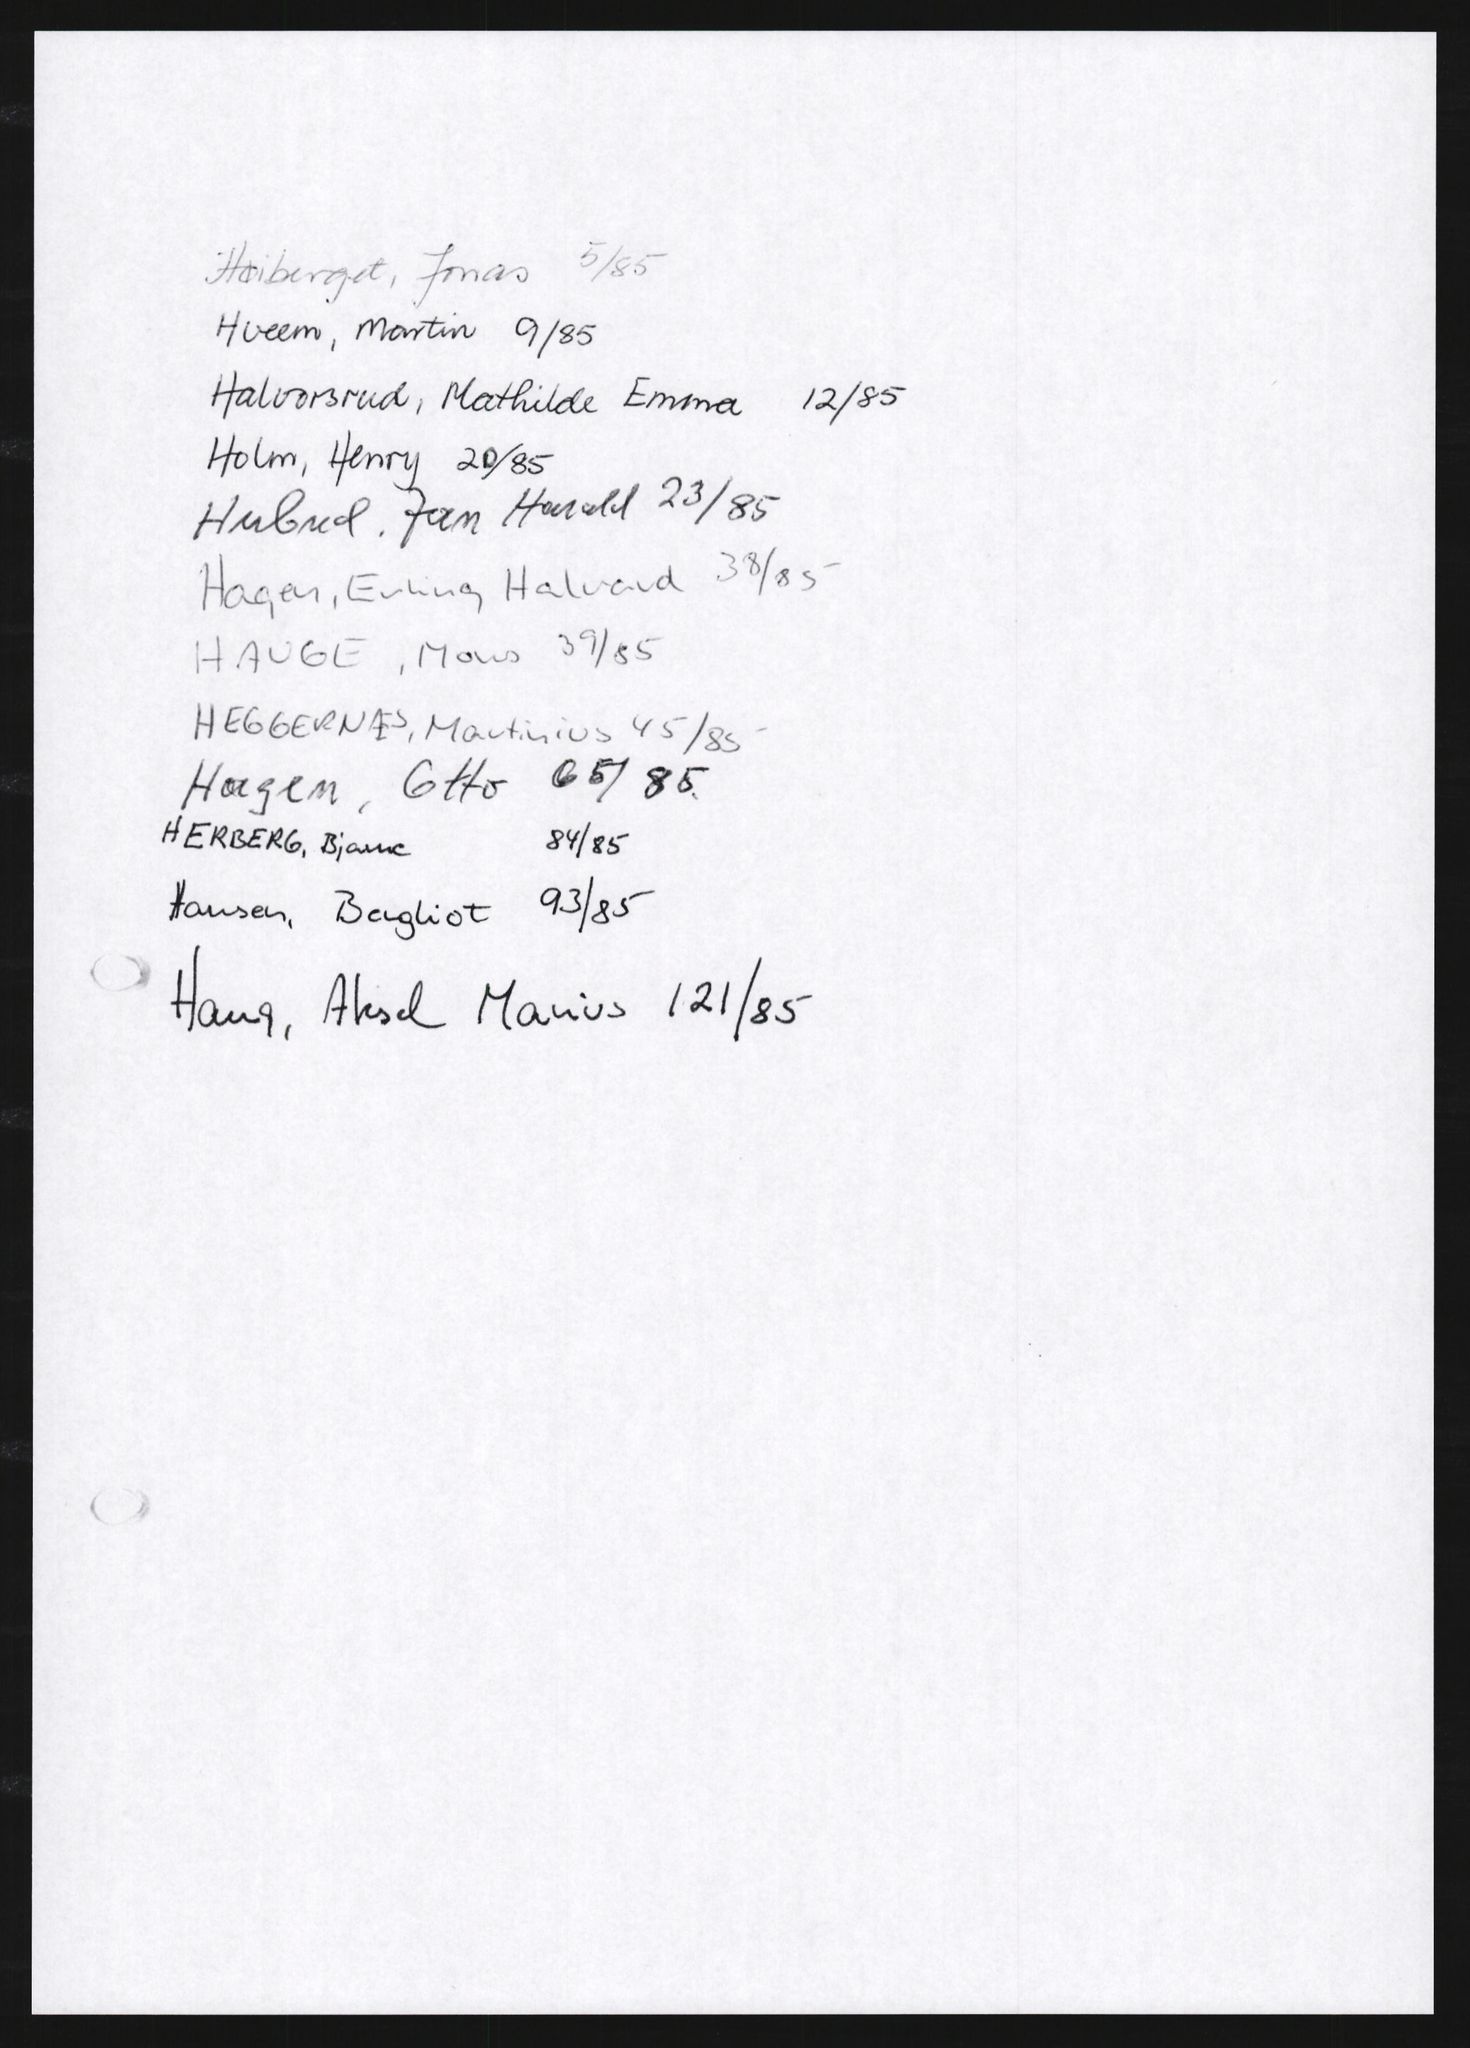 Høiberget, Jonas 5/85
Hveem, Martin 9/85
Halvorsrud, Mathilde Emma 12/85
Holm, Henry 20/85
Jan Harald 23/85
Hagen, Erling Halvard 38/85
HAUGE, Mons 39/85
HEGGERNÆS, Martinius 45/85
Hagen, Otto 65/85.
HERBERG, Bjarne 84/85
Hansen, Bergliot 93/85
Haug, Aksel Marius 121/85